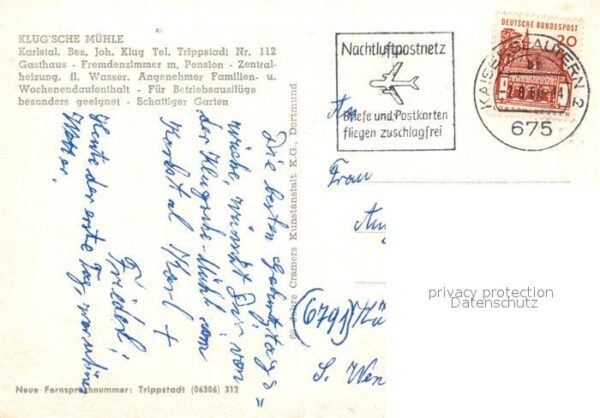 KLUG'SCHE MÜHLE
Karlstal. Bes. Joh. Klug Tel. Trippstadt Nr. 112
Gasthaus - Fremdenzimmer m. Pension - Zentral-
heizung, fl. Wasser. Angenehmer Familien- u.
Wochenendaufenthalt - Für Betriebsausflüge
besonders geeignet - Schattiger Garten
Nachtluftpostnetz
Briefe und Postkarten
fliegen zuschlagfrei
DEUTSCHE BUNDESPOST
20
KAISERSLAUTERN 2
675
Die besten Geburtstags
wünsche, wünscht Dir von
der Klugsche-Mühl im
Karlstal Karl +
Friedel
Heute der erste Tag, war schönes
Wetter.
Cramers Kunstanstalt K.G., Dortmund
An
Frau
(6791)
S. Wen
privacy protection
Datenschutz
Neue Fernsprechnummer: Trippstadt (06306) 312